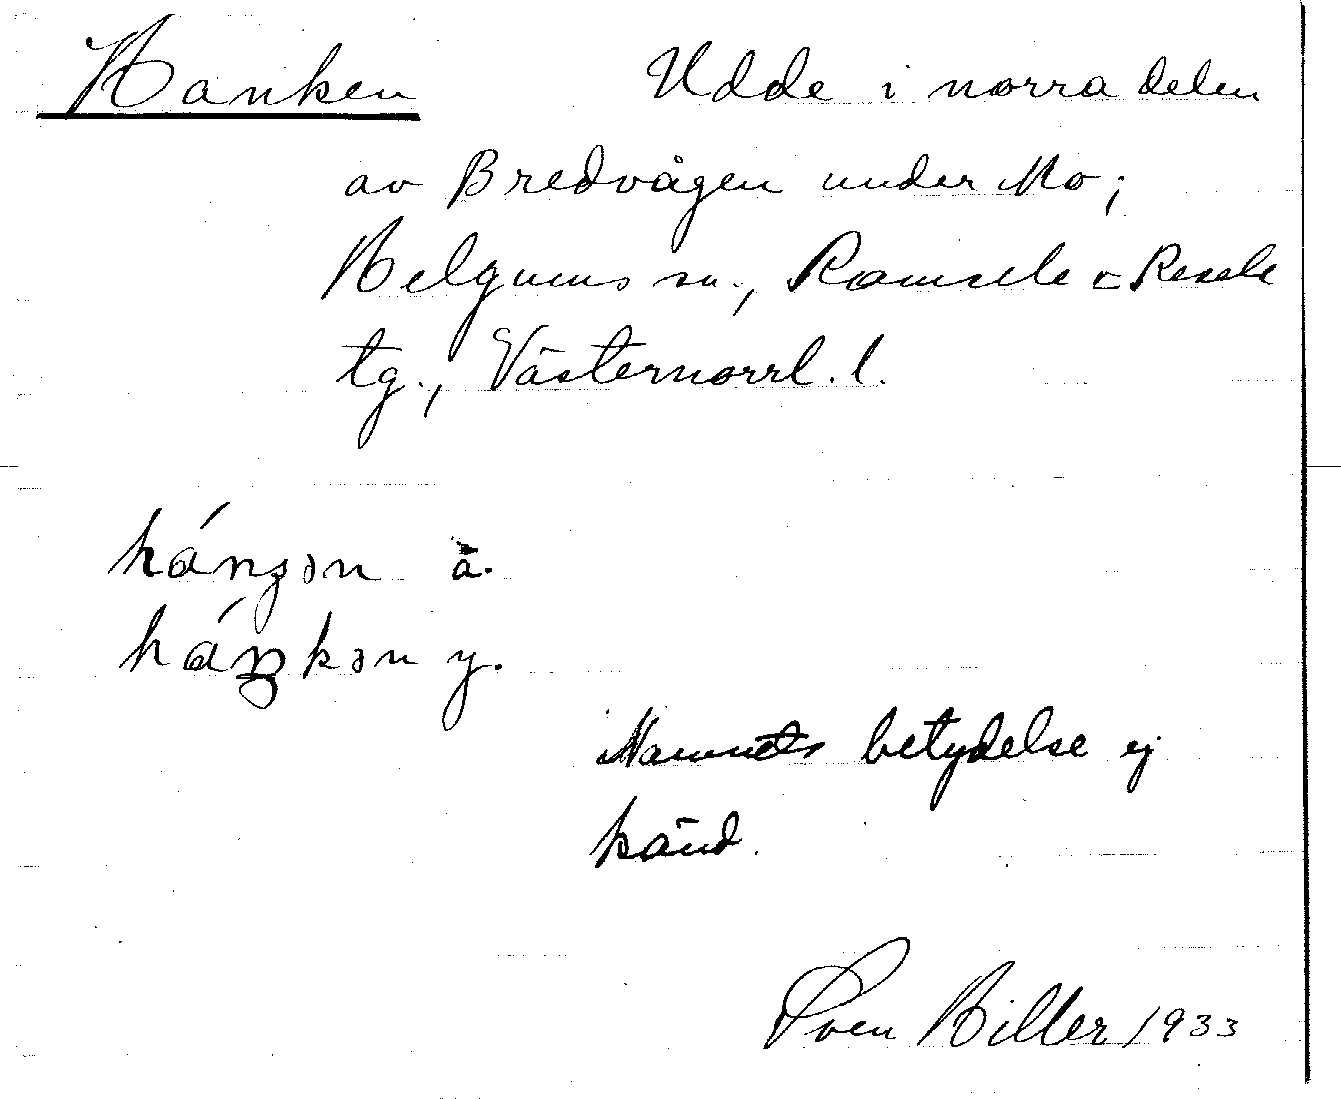 Hanken Udde i norra delen
av Bredvågen under Mo;
Helgums sn., Ramsele o Resele
tg., Västernorrl. l.
hánɡən ä.
háŋkən y.
Namnets betydelse ej
känd.
Sven Hiller 1933